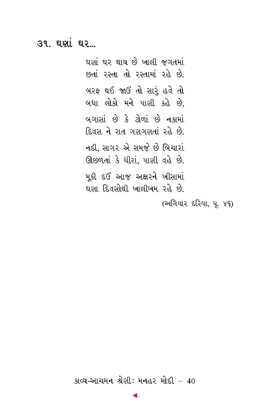 ૩૧. ઘણાં ઘર...
ઘણાં ઘર થાય છે ખાલી જગતમાં
છતાં રસ્તા તો રસ્તામાં રહે છે.
બરફ થઈ જાઉં તો સારું હવે તો
બધા લોકો મને પાણી કહે છે,
બગાસાં છે કે ટોળાં છે નકામાં
દિવસ ને રાત ગણગણતાં રહે છે.
નદી, સાગર એ સમજે છે બિચારાં
ઊછળતાં કે ધીરાં, પાણી વહે છે.
મૂકી દઉં આજ અક્ષરને ખીસામાં
ઘણા દિવસોથી ખાલીખમ રહે છે.
(અગિયાર દરિયા, પૃ. ૪૬)
કાવ્ય-આચમન શ્રેણી: મનહર મોદી – 40